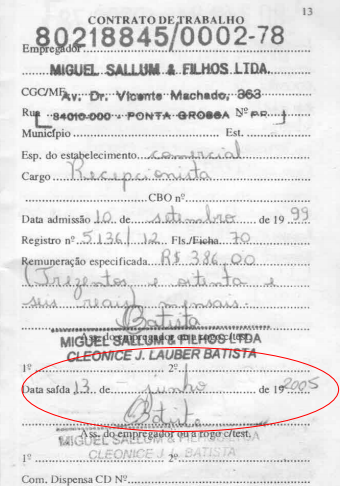 13
CONTRATO DE TRABALHO
80218845/0002-78
Empregador
MIGUEL SALLUM & FILHOS LTDA.
CGC/MF Av. Dr. Vicente Machado, 363
Rua Nº
84010-000 - PONTA GROSSA - PR.
Município Est.
Esp. do estabelecimento comercial
Cargo Recepcionista
CBO nº
Data admissão 10 de setembro de 1999
Registro nº 5136/12 Fls./Ficha 70
Remuneração especificada R$ 386,00
(Trezentos e oitenta e
seis reais) mensais.
Batista
Ass. do empregador ou a rogo c/test.
MIGUEL SALLUM & FILHOS LTDA
CLEONICE J. LAUBER BATISTA
1º 2º
Data saída 13 de junho de 19 2005
Batista
Ass. do empregador ou a rogo c/test.
MIGUEL SALLUM & FILHOS LTDA
CLEONICE J. BATISTA
1º 2º
Com. Dispensa CD Nº